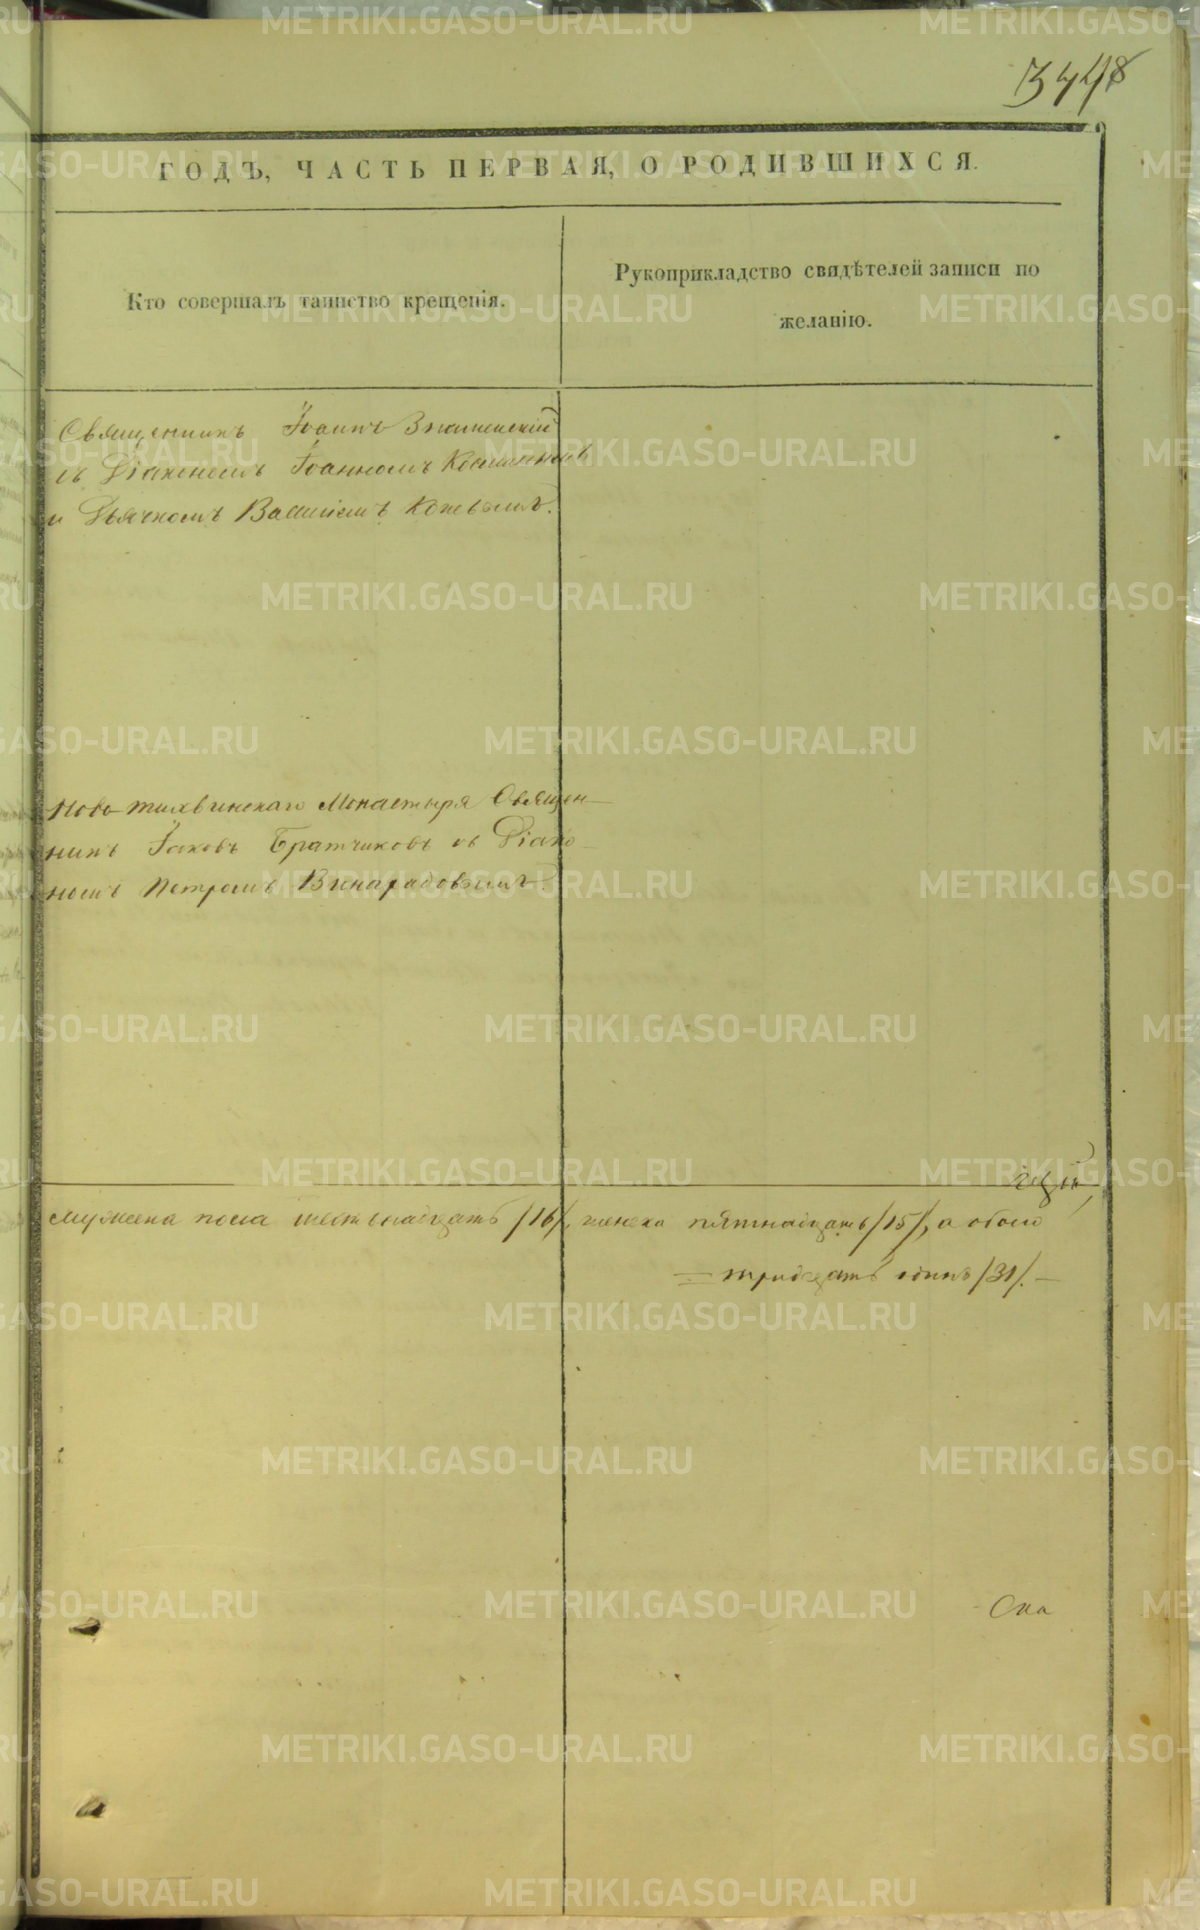 3448
ГОДЪ, ЧАСТЬ ПЕРВАЯ, О РОДИВШИХСЯ.
Кто совершалъ таинство крещенія.
Рукоприкладство свидѣтелей записи по
желанію.
Священникъ Іоаннъ Знаменскій
съ Діакономъ Іоанномъ
и Дьячкомъ Василіемъ
Ново-тихвинскаго Монастыря Священ-
никъ Іаковъ Братчиковъ съ Діако-
номъ Петромъ Винарадовымъ.
мужеска пола шестьнадцать /16/, женска пятнадцать /15/, а обоего
тридцать одинъ /31/.
METRIKI.GASO-URAL.RU